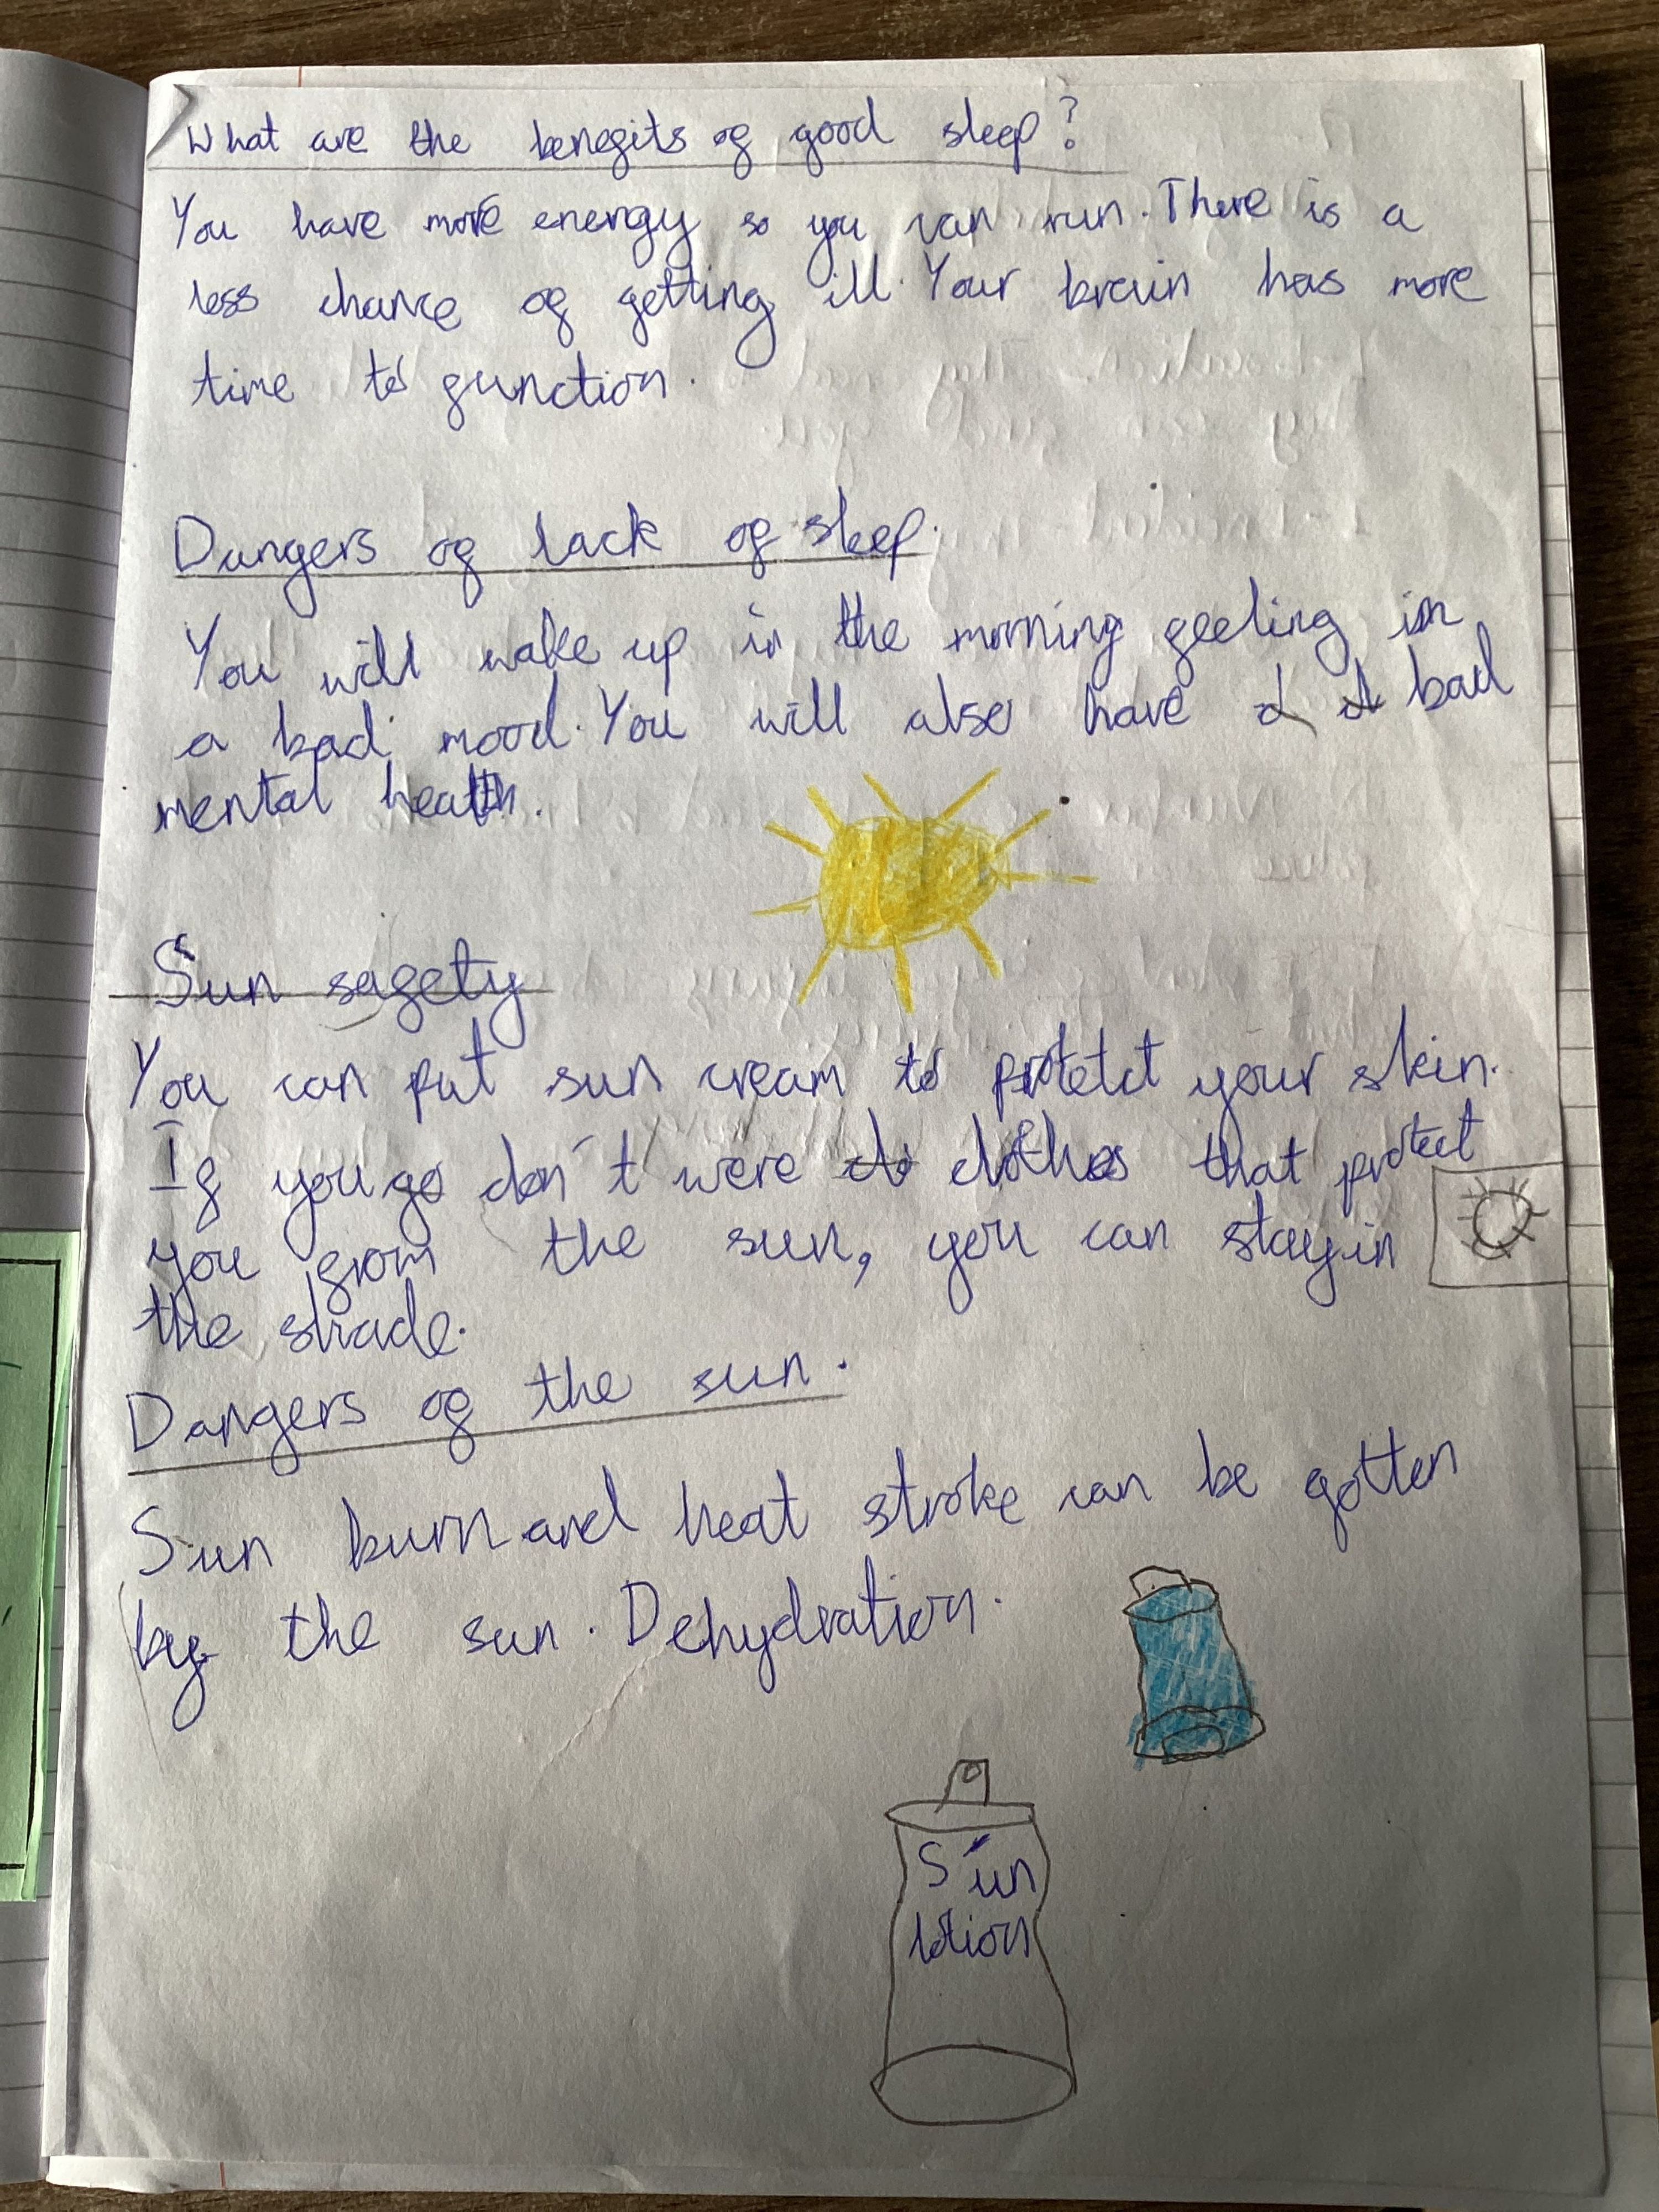 What are the benefits of good sleep?
You have more energy so you can run. There is a
less chance of getting ill. Your brain has more
time to function.
Dangers of lack of sleep.
You will wake up in the morning feeling in
a bad mood. You will also have a bad
mental health.
Sun safety
You can put sun cream to protect your skin.
If you go don't were clothes that protect
you from the sun, you can stay in
the shade.
Dangers of the sun.
Sun burn and heat stroke can be gotten
by the sun. Dehydration.
Sun
lotion